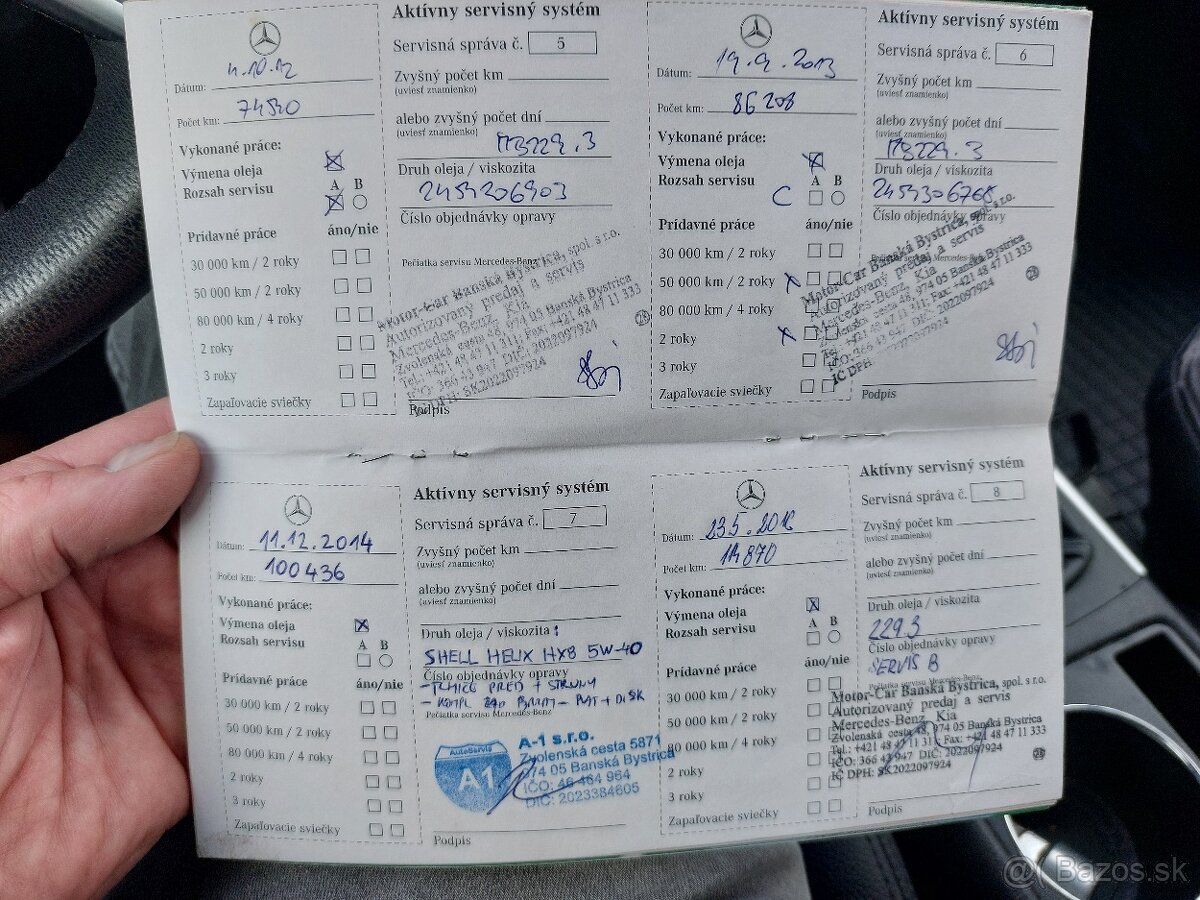 Dátum: 4.10.12
Počet km: 74520
Vykonané práce:
Výmena oleja
Rozsah servisu A B
Prídavné práce áno/nie
30 000 km / 2 roky
50 000 km / 2 roky
80 000 km / 4 roky
2 roky
3 roky
Zapaľovacie sviečky
Aktívny servisný systém
Servisná správa č. 5
Zvyšný počet km
(uviesť znamienko)
alebo zvyšný počet dní
(uviesť znamienko)
MB229.3
Druh oleja / viskozita
2459206903
Číslo objednávky opravy
Pečiatka servisu Mercedes-Benz
Motor-Car Banská Bystrica, spol. s r.o.
Autorizovaný predaj a servis
Mercedes-Benz, Kia
Zvolenská cesta 48, 974 05 Banská Bystrica
Tel.: +421 48 47 11 311; Fax: +421 48 47 11 333
IČO: 366 43 947 DIČ: 2022097924
IČ DPH: SK2022097924
Podpis
Dátum: 19.9.2013
Počet km: 86208
Vykonané práce:
Výmena oleja
Rozsah servisu A B
C
Prídavné práce áno/nie
30 000 km / 2 roky
50 000 km / 2 roky
80 000 km / 4 roky
2 roky
3 roky
Zapaľovacie sviečky
Aktívny servisný systém
Servisná správa č. 6
Zvyšný počet km
(uviesť znamienko)
alebo zvyšný počet dní
(uviesť znamienko)
MB229.3
Druh oleja / viskozita
2459306768
Číslo objednávky opravy
Pečiatka servisu Mercedes-Benz
Motor-Car Banská Bystrica, spol. s r.o.
Autorizovaný predaj a servis
Mercedes-Benz, Kia
Zvolenská cesta 48, 974 05 Banská Bystrica
Tel.: +421 48 47 11 311; Fax: +421 48 47 11 333
IČO: 366 43 947 DIČ: 2022097924
IČ DPH:
Podpis
Dátum: 11.12.2014
Počet km: 100436
Vykonané práce:
Výmena oleja
Rozsah servisu A B
Prídavné práce áno/nie
30 000 km / 2 roky
50 000 km / 2 roky
80 000 km / 4 roky
2 roky
3 roky
Zapaľovacie sviečky
Aktívny servisný systém
Servisná správa č. 7
Zvyšný počet km
(uviesť znamienko)
alebo zvyšný počet dní
(uviesť znamienko)
Druh oleja / viskozita :
SHELL HELIX HX8 5W-40
Číslo objednávky opravy
- TLMIČE PRED + STRUNY
- KOMPL ZAD - PLAT + DISK
Pečiatka servisu Mercedes-Benz
AutoServis
A1
A-1 s.r.o.
Zvolenská cesta 5871
974 05 Banská Bystrica
IČO: 46 464 964
DIČ: 2023384605
Podpis
Dátum: 23.5.2018
Počet km:
Vykonané práce:
Výmena oleja
Rozsah servisu A B
Prídavné práce áno/nie
30 000 km / 2 roky
50 000 km / 2 roky
80 000 km / 4 roky
2 roky
3 roky
Zapaľovacie sviečky
Aktívny servisný systém
Servisná správa č. 8
Zvyšný počet km
(uviesť znamienko)
alebo zvyšný počet dní
(uviesť znamienko)
Druh oleja / viskozita
229.3
Číslo objednávky opravy
SERVIS B
Pečiatka servisu Mercedes-Benz
Motor-Car Banská Bystrica, spol. s r.o.
Autorizovaný predaj a servis
Mercedes-Benz, Kia
Zvolenská cesta 48, 974 05 Banská Bystrica
Tel.: +421 48 47 11 311; Fax: +421 48 47 11 333
IČO: 366 43 947 DIČ: 2022097924
IČ DPH: SK2022097924
Podpis
Bazos.sk